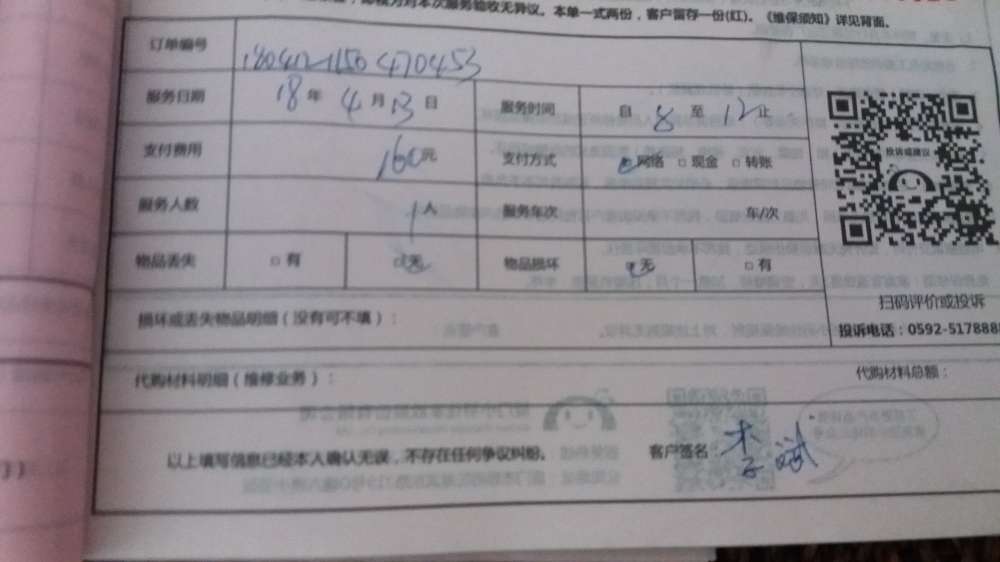 对本次服务验收无异议。本单一式两份，客户留存一份(红)。《维保须知》详见背面。
订单编号 1804121150470453
服务日期 18年 4月13日 服务时间 自 8 至 12 止
支付费用 160元 支付方式 网络 □ 现金 □ 转账
投诉或建议
服务人数 1人 服务车次 车/次
物品丢失 □ 有 无 物品损坏 无 □ 有
扫码评价或投诉
损坏或丢失物品明细（没有可不填）：
投诉电话：0592-517888
代购材料明细（维修业务）： 代购材料总额：
以上填写信息已经本人确认无误，不存在任何争议纠纷。 客户签名：李斌